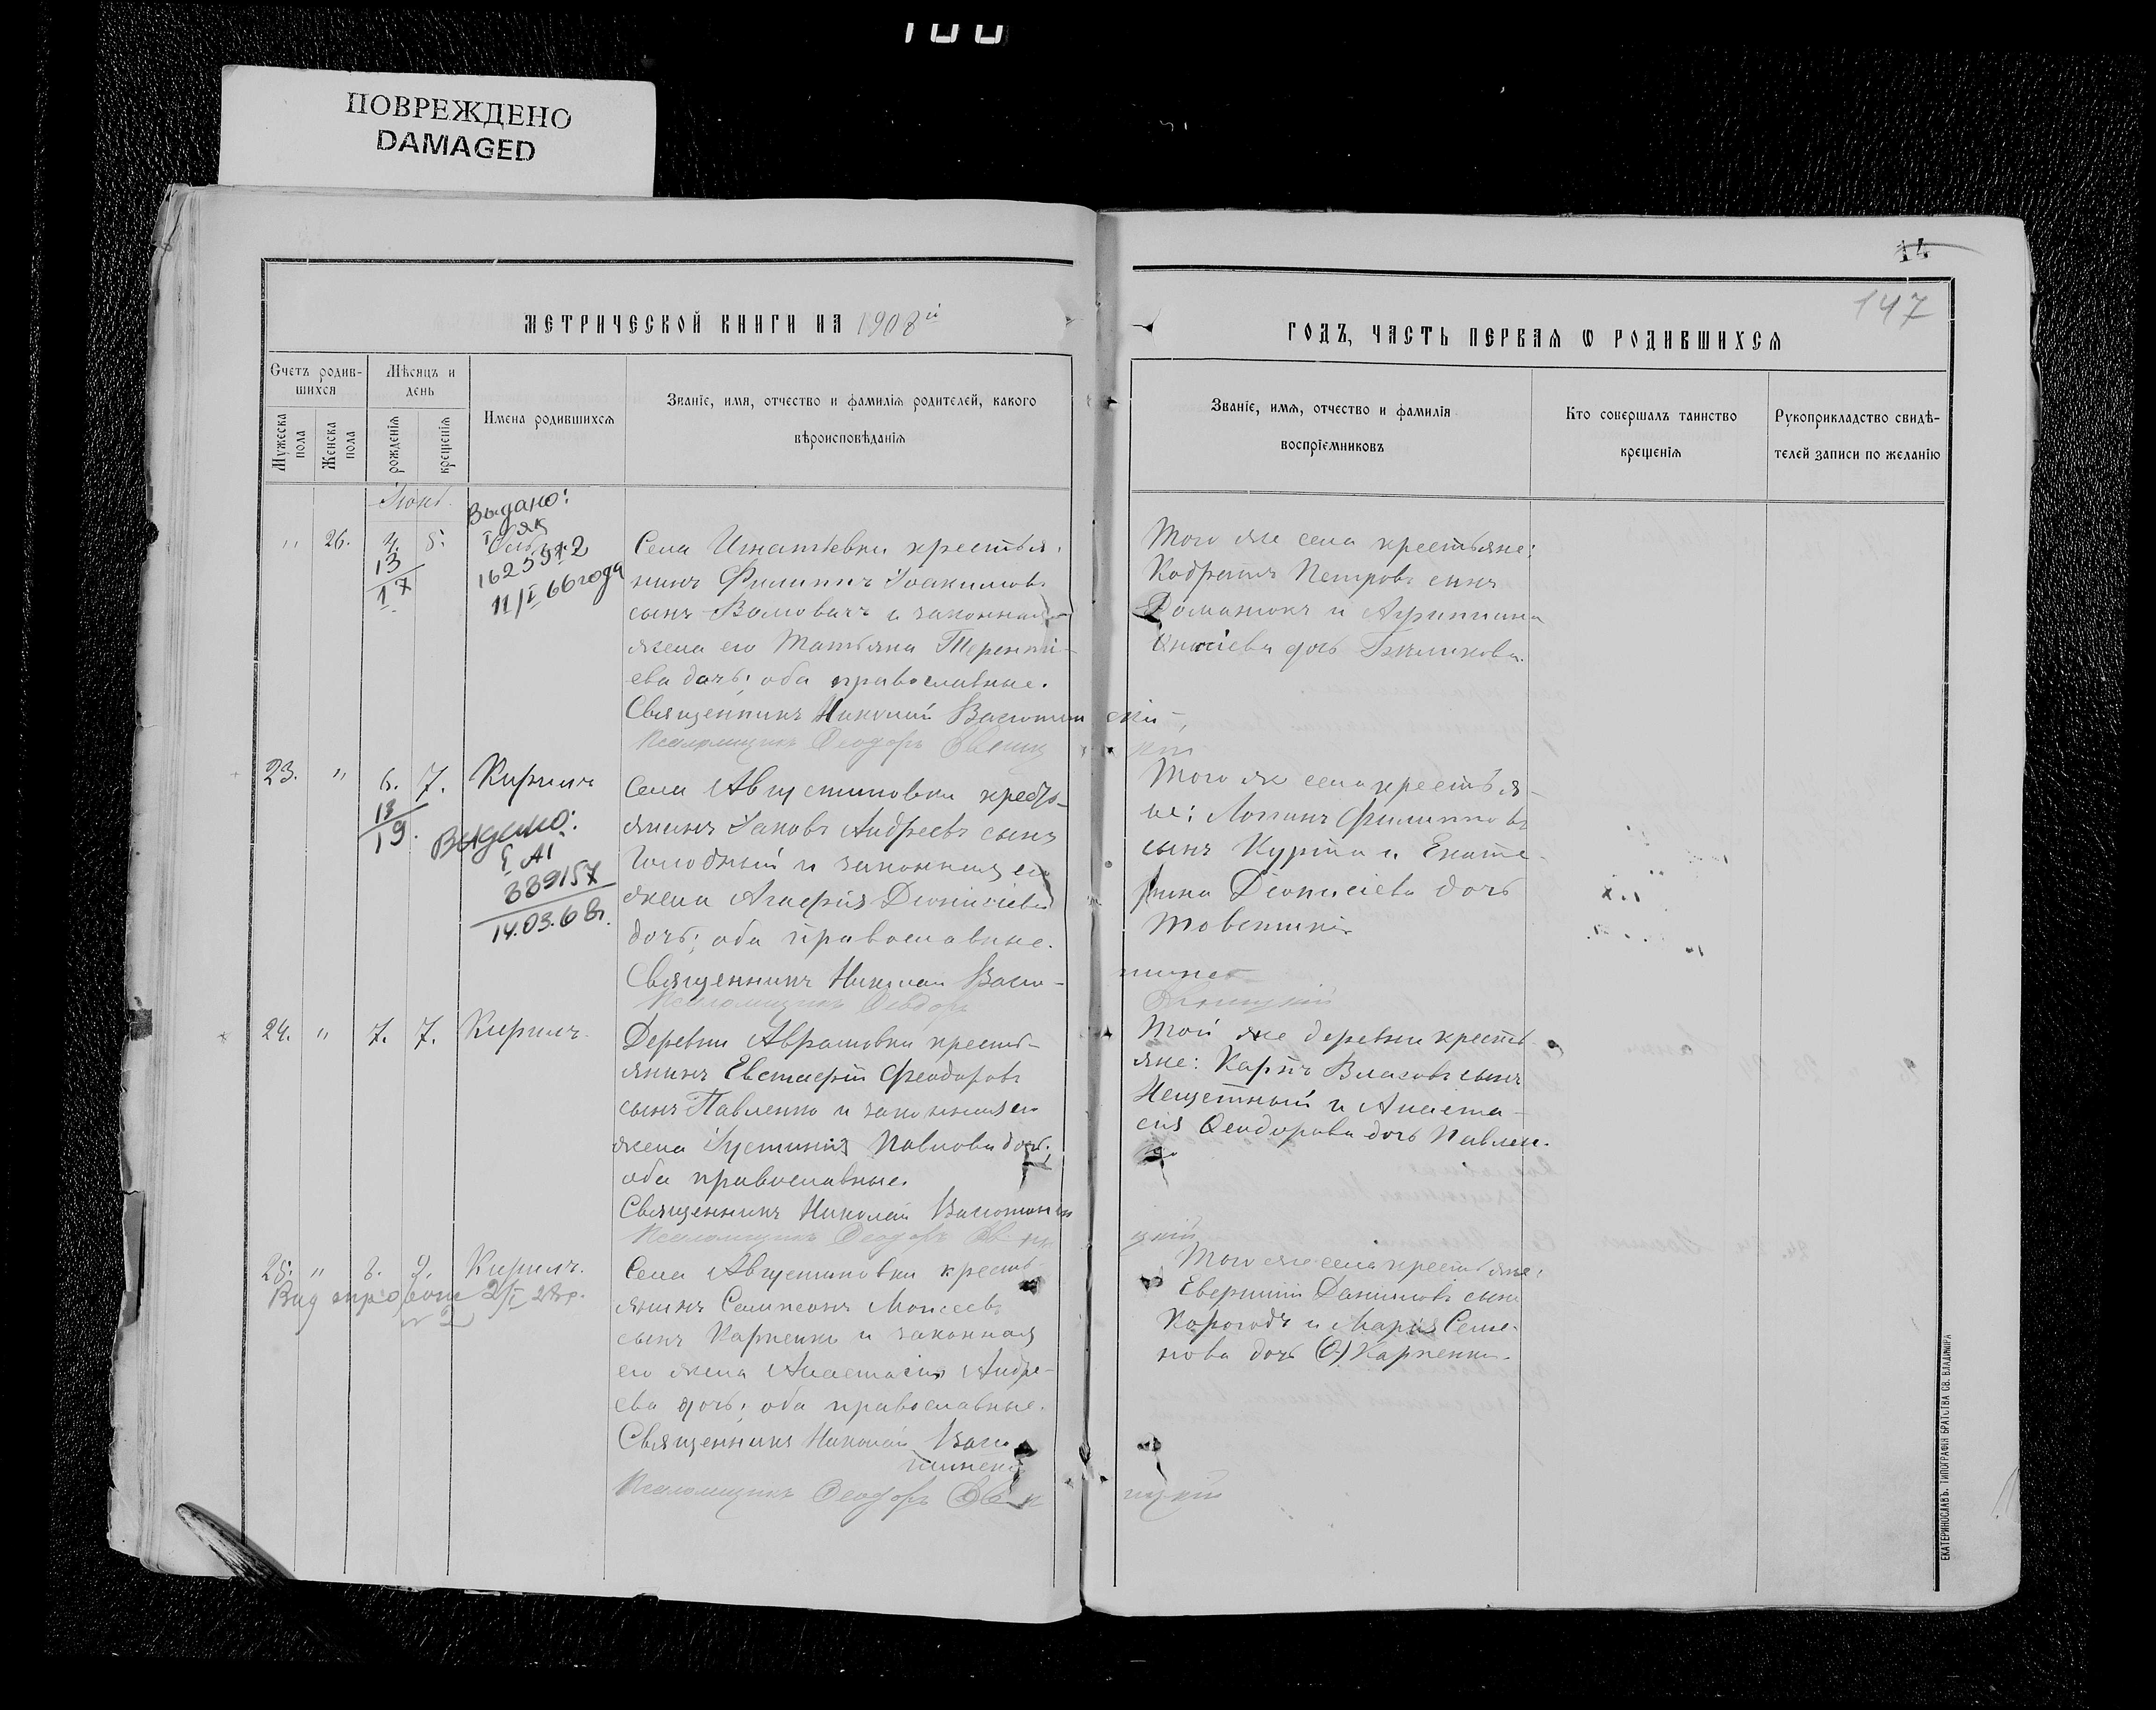 100
ПОВРЕЖДЕНО
DAMAGED
14
147
МЕТРИЧЕСКОЙ КНИГИ НА 1908й
ГОДЪ, ЧАСТЬ ПЕРВАЯ Ѡ РОДИВШИХСЯ
Счетъ родив-
шихся
Мужеска
пола
Женска
пола
Мѣсяцъ и
день
рожденія
крещенія
Имена родившихся
Званіе, имя, отчество и фамилія родителей, какого
вѣроисповѣданія
Званіе, имя, отчество и фамилія
воспріемниковъ
Кто совершалъ таинство
крещенія
Рукоприкладство свидѣ-
телей записи по желанію
Іюнь
Выдано:
I ЯК
" 26. 4. 5.
13
17
11/I 66 года
Села Игнатьевки крестья-
нинъ Филиппъ Іоакимовъ
сынъ и законная
жена его Татьяна Терентi-
ева дочь; оба православные.
Священникъ Николай
Псаломщикъ Ѳеодоръ
Того же села крестьяне:
Петровъ сынъ
Доманюкъ и Агриппина
дочь
23. " 6. 7. Кириллъ
19
19.
Выдано:
I АІ
339157
14.03.68г.
Села Августиновки кресть-
янинъ Іаковъ Андреевъ сынъ
Голодный и законная его
жена Агафія Діонисіева
дочь; оба православные.
Священникъ Николай
Псаломщикъ Ѳеодоръ
Того же села крестья-
не: Филипповъ
сынъ Курта и Екате-
рина Діонисіева дочь
24. " 7. 7. Кириллъ.
Деревни Аврамовки кресть-
янинъ Евстафій Феодоровъ
сынъ Павленко и законная его
жена Іустинія Павлова дочь;
оба православные.
Священникъ Николай
Псаломщикъ Ѳеодоръ
Той же деревни кресть-
яне: Карпъ Власовъ сынъ
Нещетный и Анаста-
сія Ѳеодорова дочь Павлен-
ко
25. " 8. 9. Кириллъ.
Села Августиновки кресть-
янинъ Сампсонъ Моисеевъ
сынъ Карпенко и законная
его жена Анастасія Андре-
ева дочь; оба православные.
Священникъ Николай
Псаломщикъ Ѳеодоръ
Того же села крестьяне:
Даниловъ сынъ
Корогодъ и Марія Семе-
нова дочь Карпенко.
ЕКАТЕРИНОСЛАВЪ. ТИПОГРАФІЯ БРАТСТВА СВ. ВЛАДИМІРА